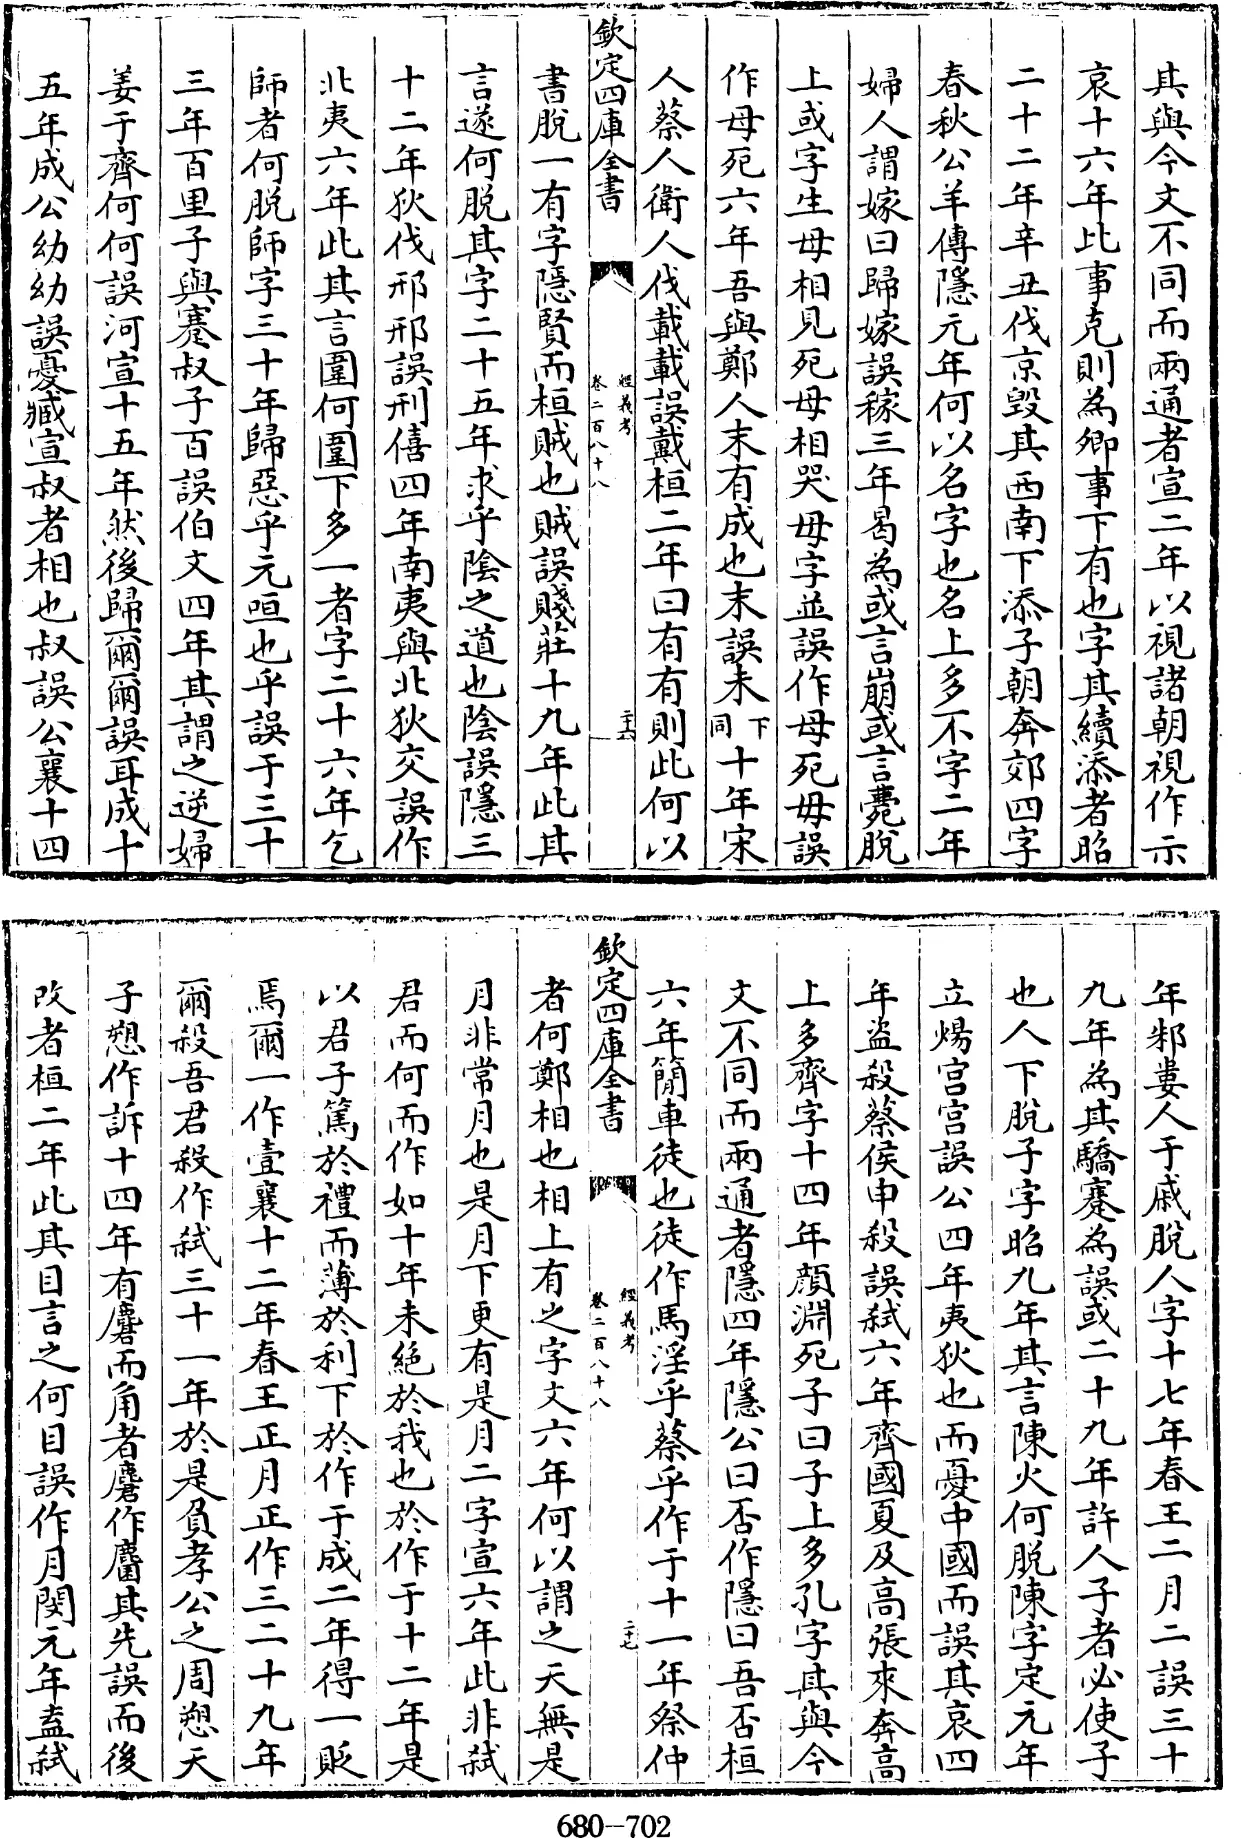 其與今文不同而兩通者宣二年以視諸朝視作示
哀十六年此事克則為卿事下有也字其續添者昭
二十二年辛丑伐京毀其西南下添子朝奔郊四字
春秋公羊傳隱元年何以名字也名上多不字二年
婦人謂嫁曰歸嫁誤稼三年曷為或言崩或言薨脫
上或字生毋相見死毋相哭毋字並誤作母死毋誤
作母死六年吾與鄭人末有成也末誤未下同十年宋
人蔡人衛人伐載載誤戴桓二年曰有有則此何以
欽定四庫全書
經義考
卷二百八十八
二十六
書脫一有字隱賢而桓賊也賊誤賤莊十九年此其
言遂何脫其字二十五年求乎陰之道也陰誤隱三
十二年狄伐邢邢誤刑僖四年南夷與北狄交誤作
北夷六年此其言圍何圍下多一者字二十六年乞
師者何脫師字三十年歸惡乎元咺也乎誤于三十
三年百里子與蹇叔子百誤伯文四年其謂之逆婦
姜于齊何何誤河宣十五年然後歸爾爾誤耳成十
五年成公幼幼誤憂臧宣叔者相也叔誤公襄十四
年邾婁人于戚脫人字十七年春王二月二誤三十
九年為其驕蹇為誤或二十九年許人子者必使子
也人下脫子字昭九年其言陳火何脫陳字定元年
立煬宮宮誤公四年夷狄也而憂中國而誤其哀四
年盜殺蔡侯申殺誤弒六年齊國夏及高張來奔高
上多齊字十四年顏淵死子曰子上多孔字其與今
文不同而兩通者隱四年隱公曰否作隱曰吾否桓
六年簡車徒也徒作馬淫乎蔡乎作于十一年祭仲
欽定四庫全書
經義考
卷二百八十八
二十七
者何鄭相也相上有之字文六年何以謂之天無是
月非常月也是月下更有是月二字宣六年此非弒
君而何而作如十年未絕於我也於作于十二年是
以君子篤於禮而薄於利下於作于成二年得一貶
焉爾一作壹襄十二年春王正月正作三二十九年
爾殺吾君殺作弒三十一年於是負孝公之周愬天
子愬作訴十四年有麏而角者麏作麕其先誤而後
改者桓二年此其目言之何目誤作月閔元年盍弒
680-702